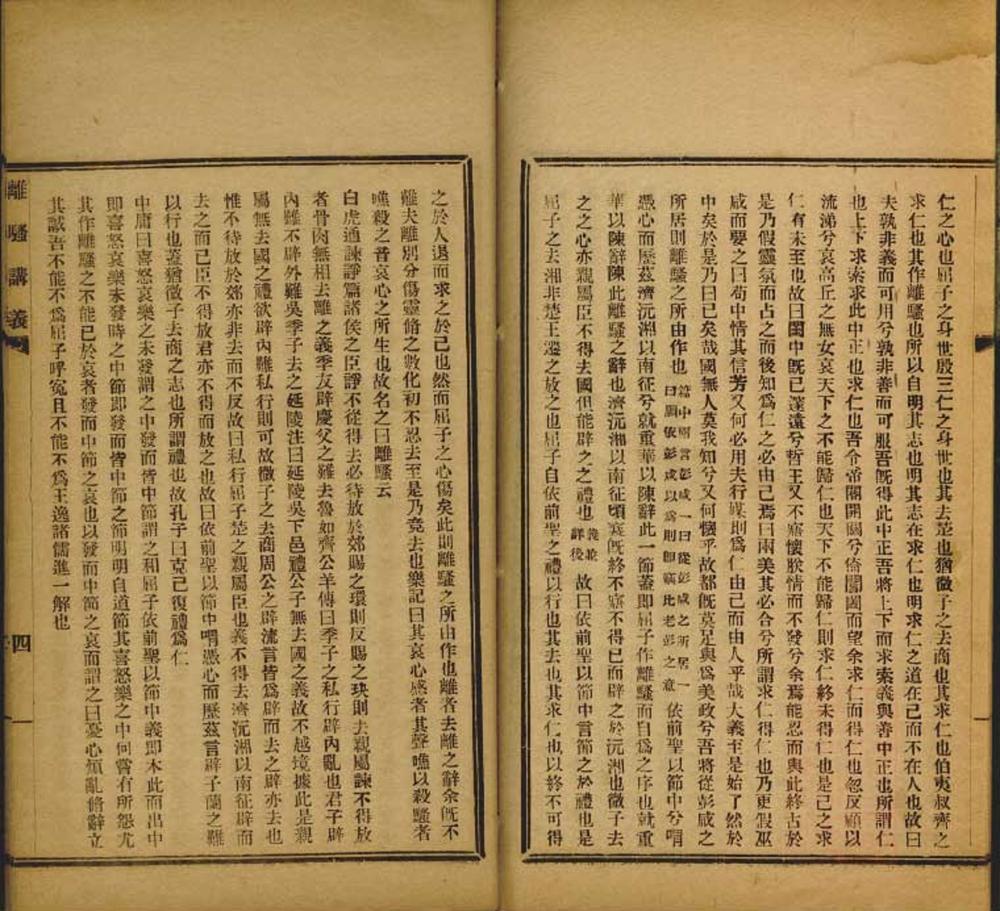 仁之心也屈子之身世殷三仁之身世也其去楚也猶微子之去商也其求仁也伯夷叔齊之
求仁也其作離騷也所以自明其志也明其志在求仁也明求仁之道在己而不在人也故曰
夫孰非義而可用兮孰非善而可服吾旣得此中正吾將上下而求索義與善中正也所謂仁
也上下求索求此中正也求仁也吾令帝閽開關兮倚閶闔而望余求仁而得仁也忽反顧以
流涕兮哀高丘之無女哀天下之不能歸仁也天下不能歸仁則求仁終未得仁也是己之求
仁有未至也故曰閨中旣已邃遠兮哲王又不寤懷朕情而不發兮余焉能忍而與此終古於
是乃假靈氛而占之而後知爲仁之必由己焉曰兩美其必合兮所謂求仁得仁也乃更假巫
咸而要之曰苟中情其信芳又何必用夫行媒則爲仁由己而由人乎哉大義至是始了然於
中矣於是乃曰已矣哉國無人莫我知兮又何懷乎故都旣莫足與爲美政兮吾將從彭咸之
所居則離騷之所由作也篇中兩言彭咸一曰從彭咸之所居一曰願依彭咸以爲則卽竊比老彭之意依前聖以節中兮喟
憑心而歷茲濟沅湘以南征兮就重華以陳辭此一節蓋卽屈子作離騷而自爲之序也就重
華以陳辭陳此離騷之辭也濟沅湘以南征頃寞旣終不寤不得已而辟之於沅湘也微子去
之之心亦親屬臣不得去國但能辟之之禮也義竝詳後故曰依前聖以節中言節之於禮也是
屈子之去湘非楚王遷之放之也屈子自依前聖之禮以行也其去也其求仁也以終不可得
之於人退而求之於己也然而屈子之心傷矣此則離騷之所由作也離者去離之辭余旣不
難夫離別分傷靈脩之數化初不忍去至是乃竟去也樂記曰其哀心感者其聲噍以殺騷者
噍殺之音哀心之所生也故名之曰離騷云
白虎通諫諍篇諸侯之臣諍不從得去必待放於郊賜之環則反賜之玦則去親屬諫不得放
者骨肉無相去離之義季友辟慶父之難去魯如齊公羊傳曰季子之私行辟內亂也君子辟
內難不辟外難吳季子去之延陵注曰延陵吳下邑禮公子無去國之義故不越境據此是親
屬無去國之禮欲辟內難私行則可故微子之去商周公之辟流言皆爲辟而去之辟亦去也
惟不待放於郊亦非去而不反故曰私行屈子楚之親屬臣也義不得去濟沅湘以南征辟而
去之而已臣不得放君亦不得而放之也故曰依前聖以節中喟憑心而歷茲言辟子蘭之難
以行也蓋猶微子去商之志也所謂禮也故孔子曰克己復禮爲仁
中庸曰喜怒哀樂之未發謂之中發而皆中節謂之和屈子依前聖以節中義卽本此而出中
卽喜怒哀樂未發時之中節卽發而皆中節之節明明自道節其喜怒樂之中何嘗有所怨尤
其作離騷之不能已於哀者發而中節之哀也以發而中節之哀而謂之曰憂心煩亂脩辭立
其誠吾不能不爲屈子呼冤且不能不爲王逸諸儒進一解也
離騷講義
四